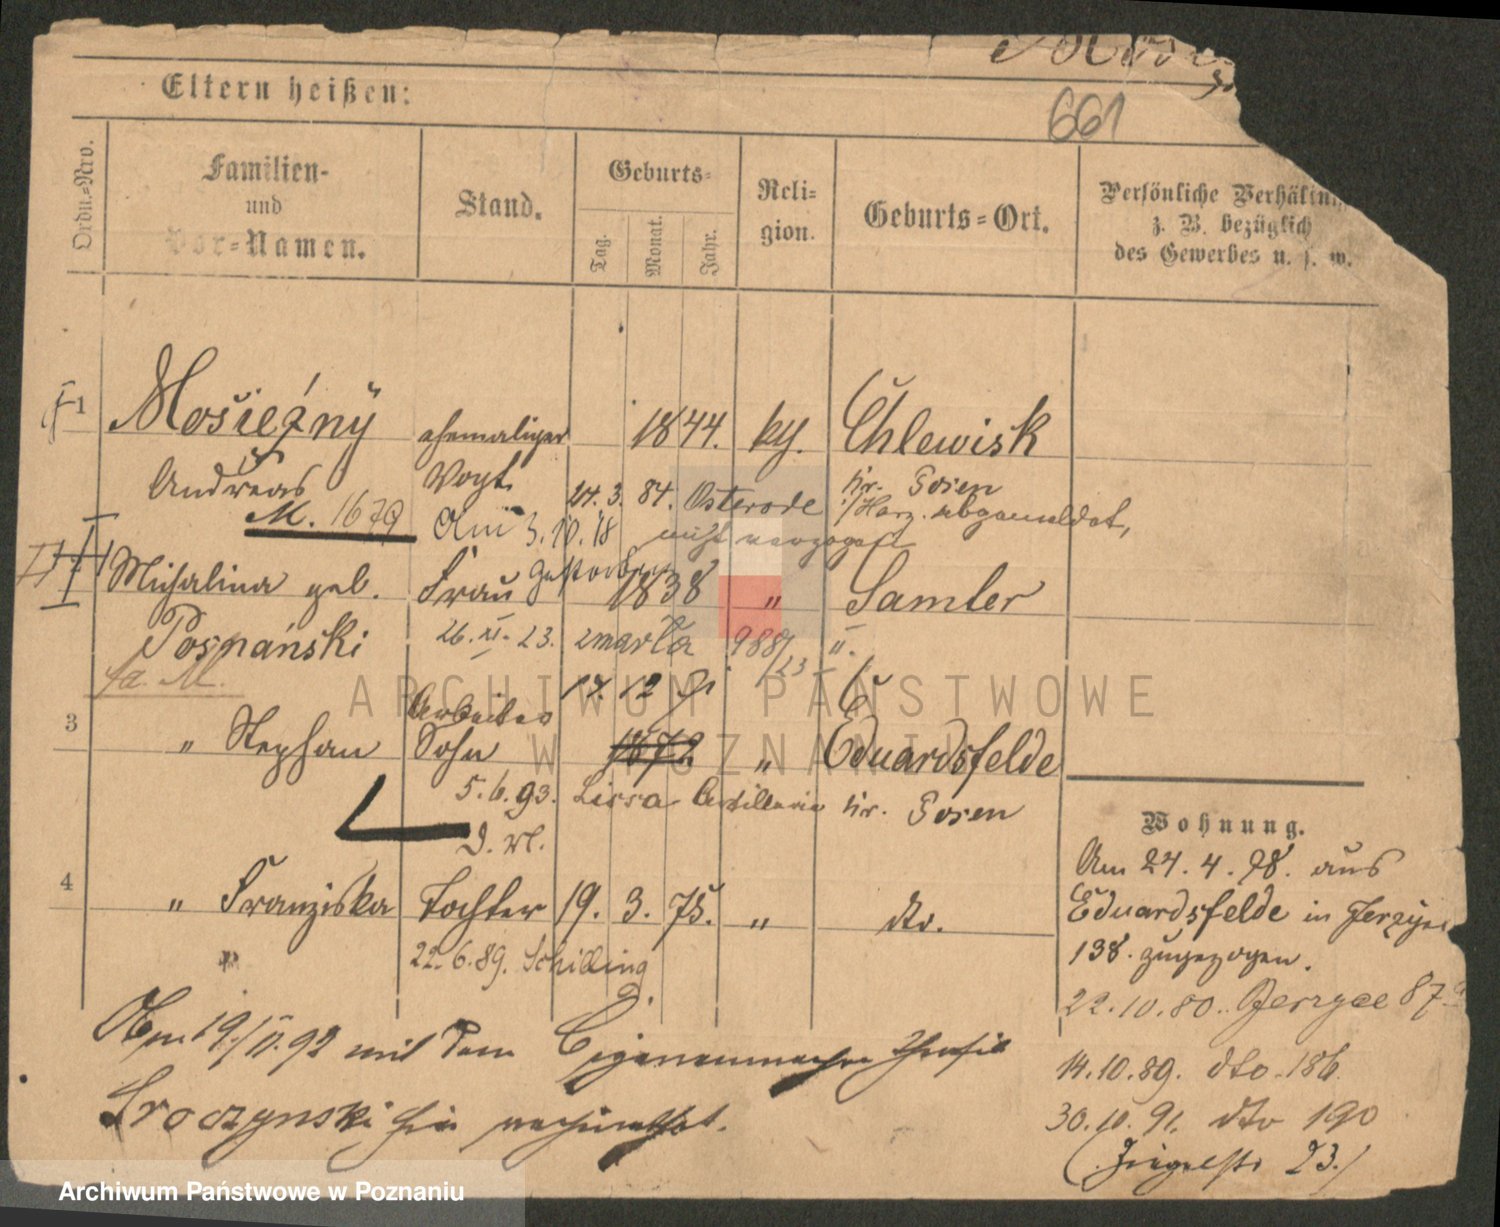 661
Eltern heißen:
Ordn.=Nro.
Familien-
und
Vor=Namen.
Stand.
Geburts=
Tag.
Monat.
Jahr.
Reli=
gion.
Geburts=Ort.
Persönliche Verhältn
z. B. bezüglich
des Gewerbes u. s. w.
1 Mosiężny ehemaliger 1844. kg. Chlewisk
Andreas Vogt 24. 3. 84. Osterode Kr. Posen
M. 1679 Am 3. 10. 18 /Harz. abgemeldet,
nicht verzogen
gestorben
Michalina geb. Frau 1838 " Samter
Posnański 26. XI. 23. zmarła 988/23 II.
fa. M.
17. 12 71
Arbeiter
3 " Stephan Sohn 1872 " Eduardsfelde
5. 6. 93. Lissa Artillerie Kr. Posen
4 " Franziska Tochter 19. 3. 75. " dto.
22. 6. 89. Schilling
Am 19./II. 92 mit dem Cigarrenmacher
Sroczynski hier verheirathet.
Wohnung.
Am 24. 4. 78. aus
Eduardsfelde in Jerzyce
138. zugezogen.
22. 10. 80. Jerzyce 87
14. 10. 89. dto. 186
30. 10. 91. dto 190
(Ziegelstr 23.)
ARCHIWUM PAŃSTWOWE
W POZNANIU
Archiwum Państwowe w Poznaniu